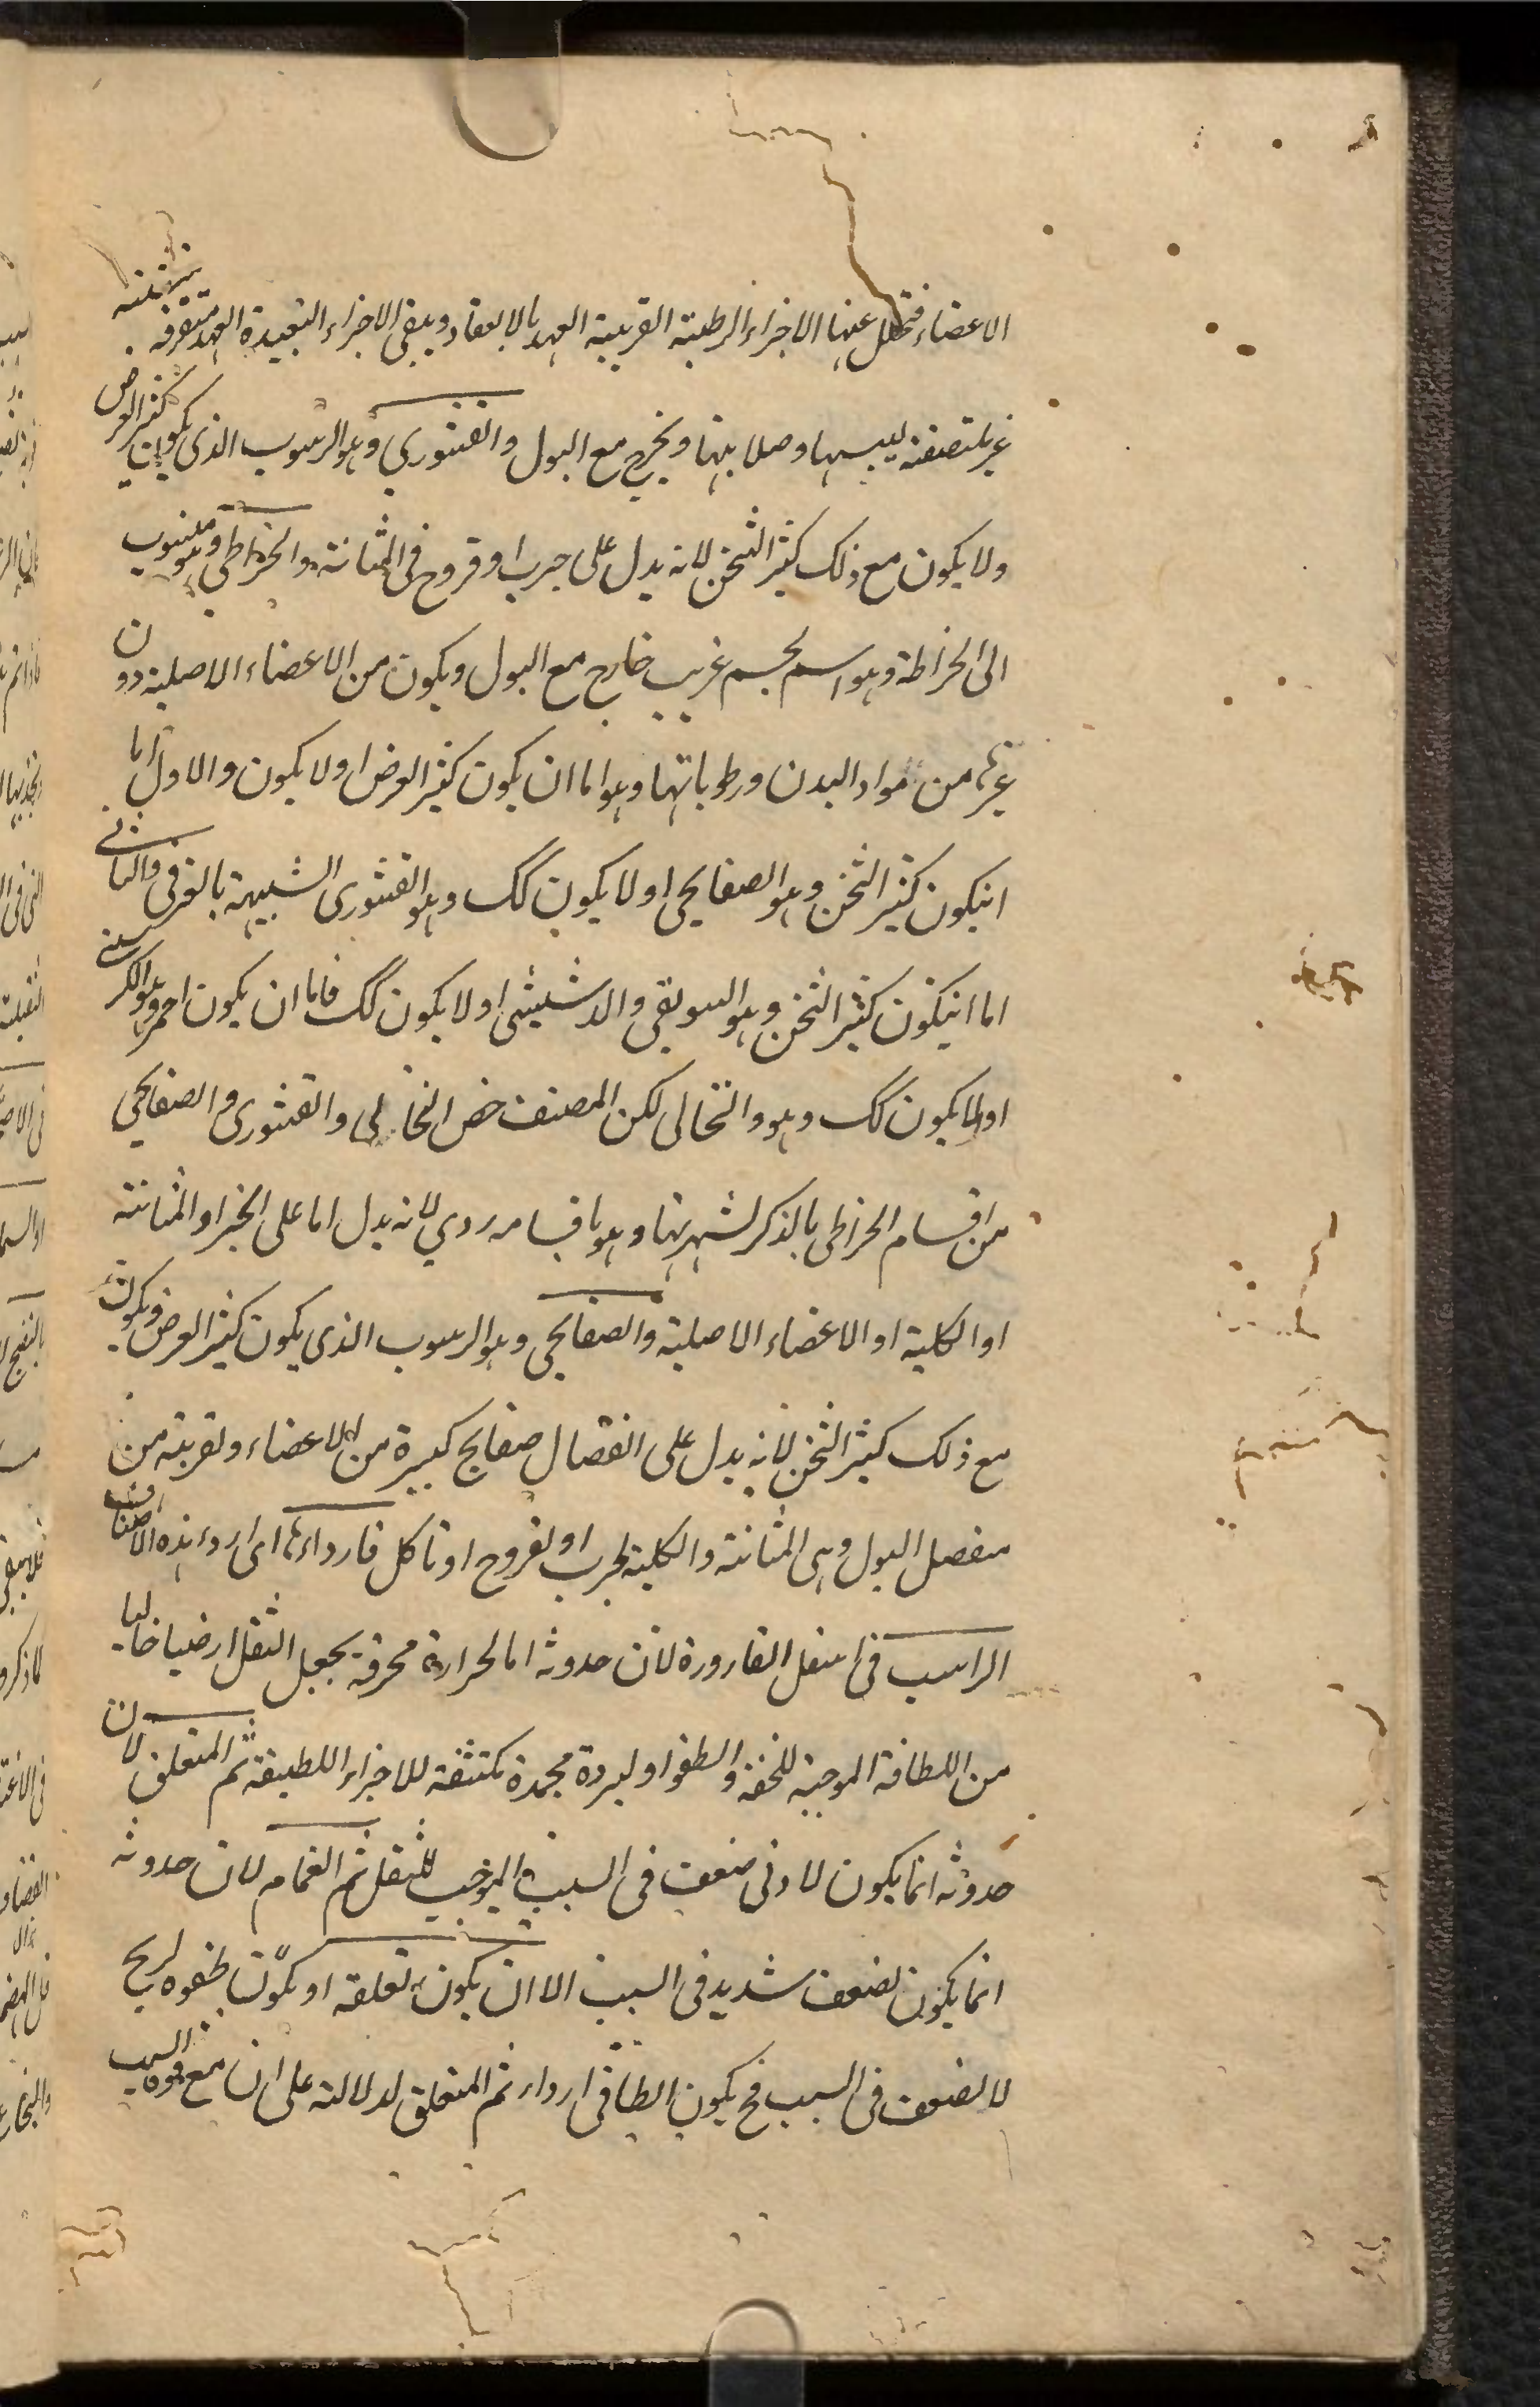 الاعضاء فتحلل عنها الاجزاء الرطبة القريبة العهد بالانعقاد ويبقى الاجزاء البعيدة العهد متفرقة
غير ملتصقة ليبسها وصلابتها ويخرج مع البول والقشوري وهو الرسوب الذي يكون كثير العرض
ولا يكون مع ذلك كثير الثخن لانه يدل على جرب او قروح في المثانة والخراطي وهو منسوب
الى الخراطة وهو اسم لجسم غريب خارج مع البول ويكون من الاعضاء الاصلية دون
غيرها من مواد البدن ورطوباتها وهو اما ان يكون كثير العرض او لا يكون والاول اما
انيكون كثير الثخن وهو الصفايحي او لا يكون كك وهو القشوري الشبيهة بالغرقى والثاني
اما انيكون كثير الثخن وهو السويقي والدشيشي او لا يكون كك فاما ان يكون احمر وهو الكرسني
اولا يكون كك وهو والنخالى لكن المصنف خص النخالى والقشورى والصفايحي
من اقسام الخراطى بالذكر لشهرتها وهو باقسامه ردي لانه يدل اما على الجرب او المثانة
او الكلية او الاعضاء الاصلية والصفايحي وهو الرسوب الذي يكون كثير العرض ويكون
مع ذلك كثير الثخن لانه يدل على انفصال صفايح كبيرة من الاعضاء وقريبة من
منفصل البول وهى المثانة والكلية لجرب او لقروح او تاكل فارداءها اى ارداء هذه الاصناف
الراسب في اسفل القارورة لان حدوثه اما لحرارة محرقة يجعل الثفل ارضيا خاليا
من اللطافة الموجبة للخفة والطفو او لبردة مجمدة مكثفة للاجزاء اللطيفة ثم المتعلق لان
حدوثه انما يكون لادنى ضعف في السبب الموجب للثفل ثم الغمام لان حدوثه
انما يكون لضعف شديد في السبب الا ان يكون تعلقه او يكون طفوه لريح
لا لضعف في السبب فح يكون الطافي ارداء ثم المتعلق لدلالته على ان مع قوة السبب